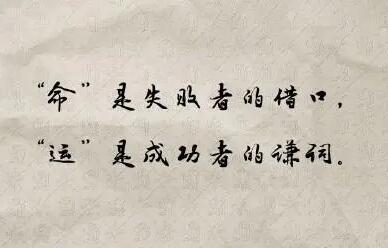 “命”是失败者的借口，
“运”是成功者的谦词。